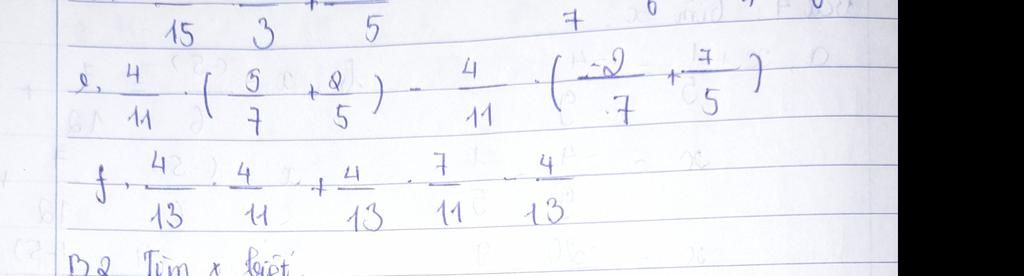 15 3 + 5 7
e, 4/11 · ( 5/7 + 2/5 ) - 4/11 · ( -2/7 + 7/5 )
f. 4/13 · 4/11 + 4/13 · 7/11 - 4/13
B2 Tìm x biết